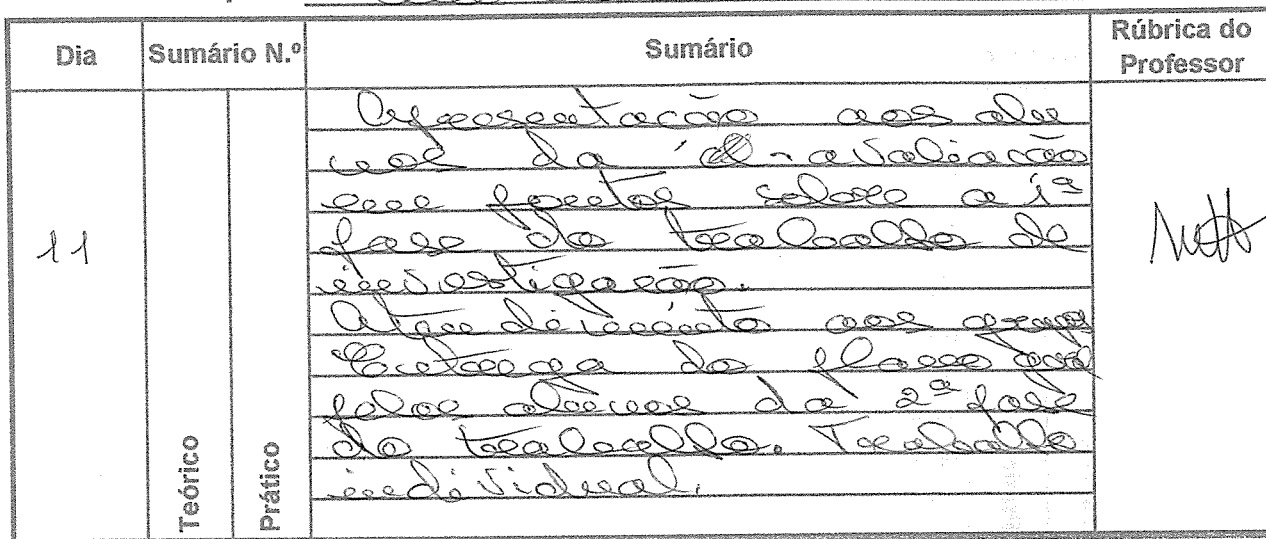 Dia Sumário N.º Sumário Rúbrica do Professor
Apresentação aos alu
nos da avaliação
em pontos sobre a 1ª
fase do trabalho de
investigação.
11
Atendimento aos grupos
Entrega do
pelos alunos da 2ª fase
do trabalho. Trabalho
individual.
Teórico
Prático